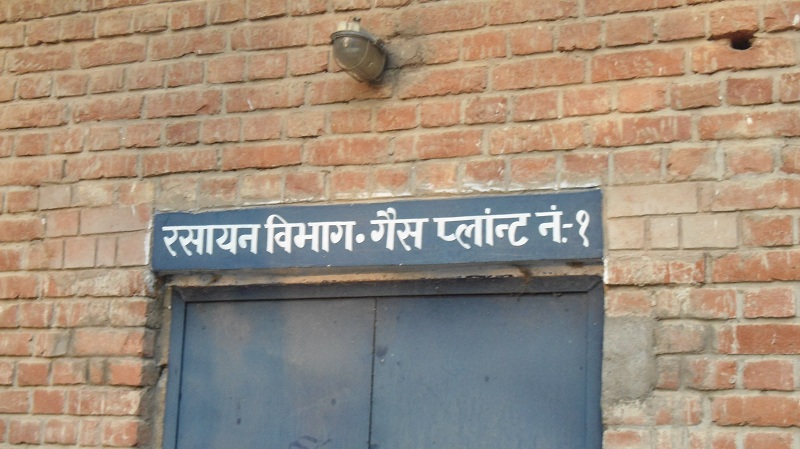 रसायन विभाग. गैस प्लांन्ट नं.-१